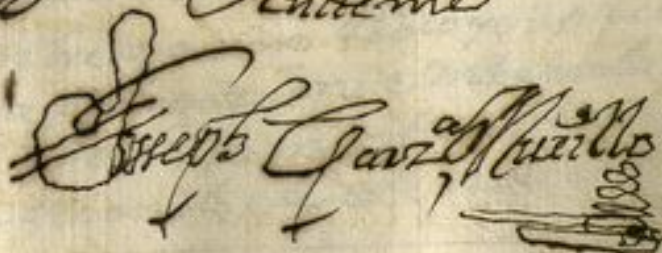 Joseph Garzª Murillo